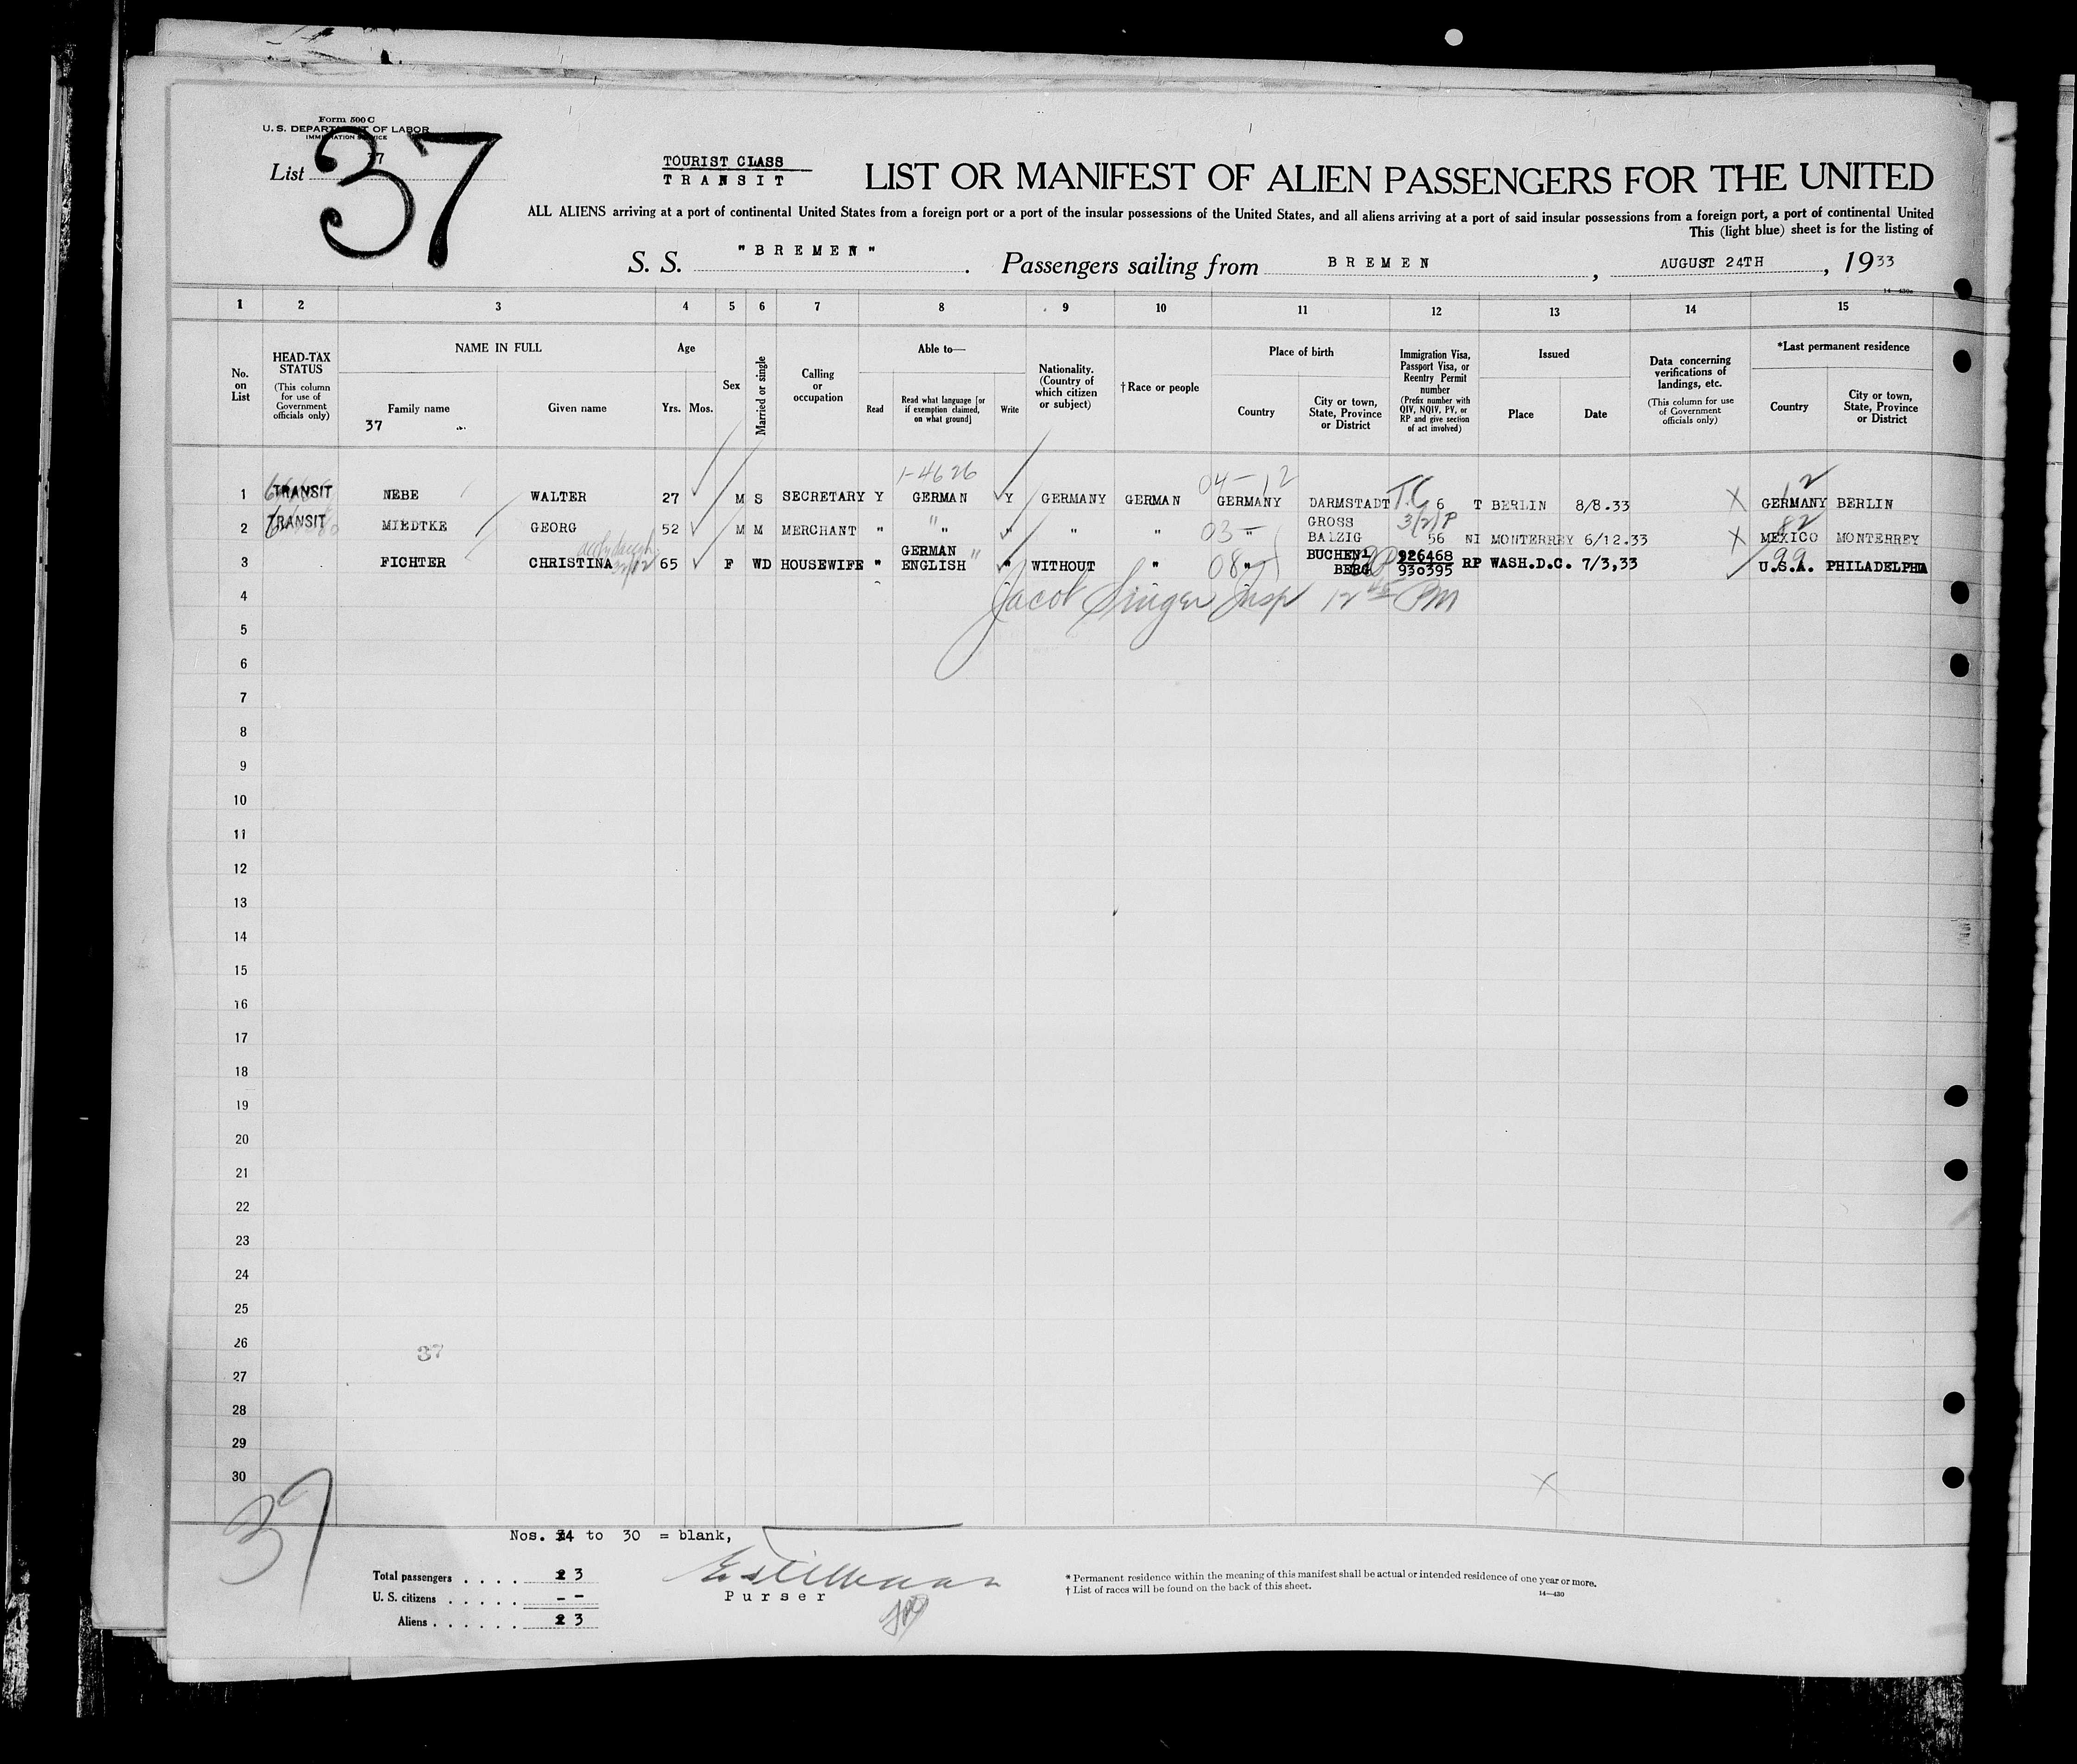 Form 500 C
U. S. DEPARTMENT OF LABOR
IMMIGRATION SERVICE
List 37
37
TOURIST CLASS
TRANSIT
LIST OR MANIFEST OF ALIEN PASSENGERS FOR THE UNITED
ALL ALIENS arriving at a port of continental United States from a foreign port or a port of the insular possessions of the United States, and all aliens arriving at a port of said insular possessions from a foreign port, a port of continental United
This (light blue) sheet is for the listing of
S. S. "BREMEN". Passengers sailing from BREMEN, AUGUST 24TH, 1933
1 2 3 4 5 6 7 8 9 10 11 12 13 14 15
No. on List
HEAD-TAX STATUS
(This column for use of Government officials only)
NAME IN FULL
Family name
37
Given name
Age
Yrs. Mos.
Sex
Married or single
Calling or occupation
Able to—
Read
Read what language [or if exemption claimed, on what ground]
Write
Nationality. (Country of which citizen or subject)
†Race or people
Place of birth
Country
City or town, State, Province or District
Immigration Visa, Passport Visa, or Reentry Permit number
(Prefix number with QIV, NQIV, PV, or RP and give section of act involved)
Issued
Place
Date
Data concerning verifications of landings, etc.
(This column for use of Government officials only)
*Last permanent residence
Country
City or town, State, Province or District
1-4626 04-12 T.C 12
1 TRANSIT NEBE WALTER 27 M S SECRETARY Y GERMAN Y GERMANY GERMAN GERMANY DARMSTADT 6 T BERLIN 8/8.33 X GERMANY BERLIN
3(2)P 82
2 TRANSIT MIEDTKE GEORG 52 M M MERCHANT " " " " " 03- " GROSS BALZIG 56 NI MONTERREY 6/12.33 X MEXICO MONTERREY
99
3 FICHTER CHRISTINA 65 F WD HOUSEWIFE " GERMAN " ENGLISH " WITHOUT " 08- " BUCHEN- BERG 926468 930395 RP WASH.D.C. 7/3,33 U.S.A. PHILADELPHIA
4 Jacob Singer Insp 12 45 PM
5
6
7
8
9
10
11
12
13
14
15
16
17
18
19
20
21
22
23
24
25
26
37
27
28
29
30
X
37
Nos. 4 to 30 = blank,
Total passengers . . . . 3
U. S. citizens . . . . . --
Aliens . . . . . . 3
Purser
* Permanent residence within the meaning of this manifest shall be actual or intended residence of one year or more.
† List of races will be found on the back of this sheet.
14—430